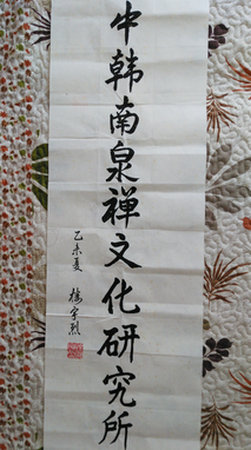 中韩南泉禅文化研究所
乙未夏 楼宇烈